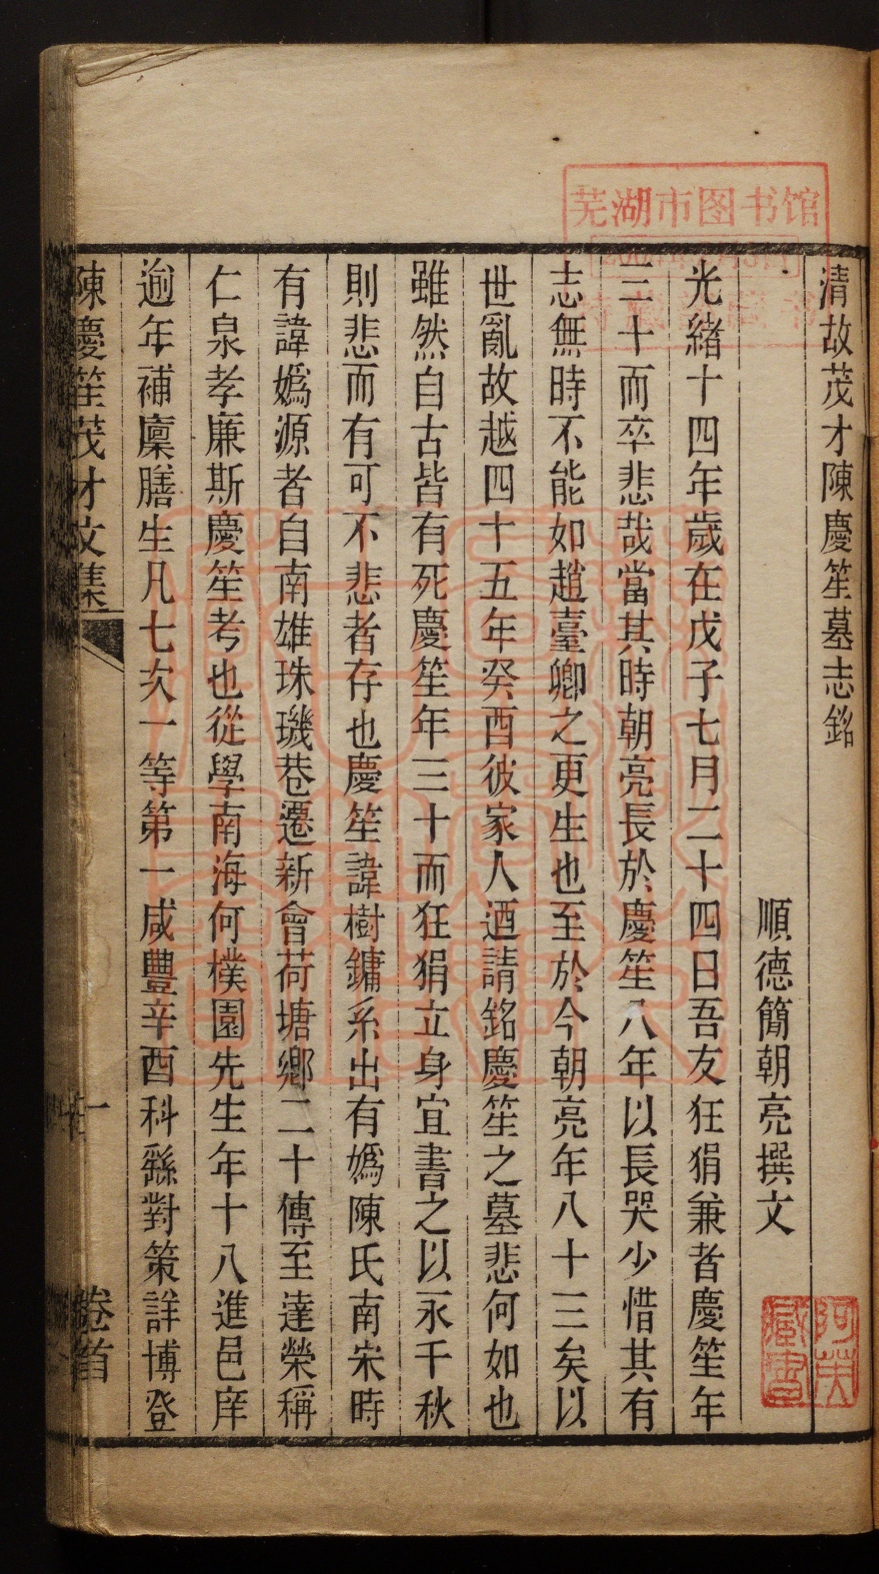 清故茂才陳慶笙墓志銘
順德簡朝亮撰文
光緒十四年歲在戊子七月二十四日吾友狂狷兼者慶笙年
三十而卒悲哉當其時朝亮長於慶笙八年以長哭少惜其有
志無時不能如趙臺卿之更生也至於今朝亮年八十三矣以
世亂故越四十五年癸酉彼家人迺請銘慶笙之墓悲何如也
雖然自古皆有死慶笙年三十而狂狷立身宜書之以永千秋
則悲而有可不悲者存也慶笙諱樹鏞系出有媯陳氏南宋時
有諱媯源者自南雄珠璣巷遷新會荷塘鄉二十傳至達榮稱
仁泉孝廉斯慶笙考也從學南海何樸園先生年十八進邑庠
逾年補廩膳生凡七次一等第一咸豐辛酉科繇對策詳博登
陳慶笙茂才文集
一
卷首
芜湖市图书馆
阿英
藏書